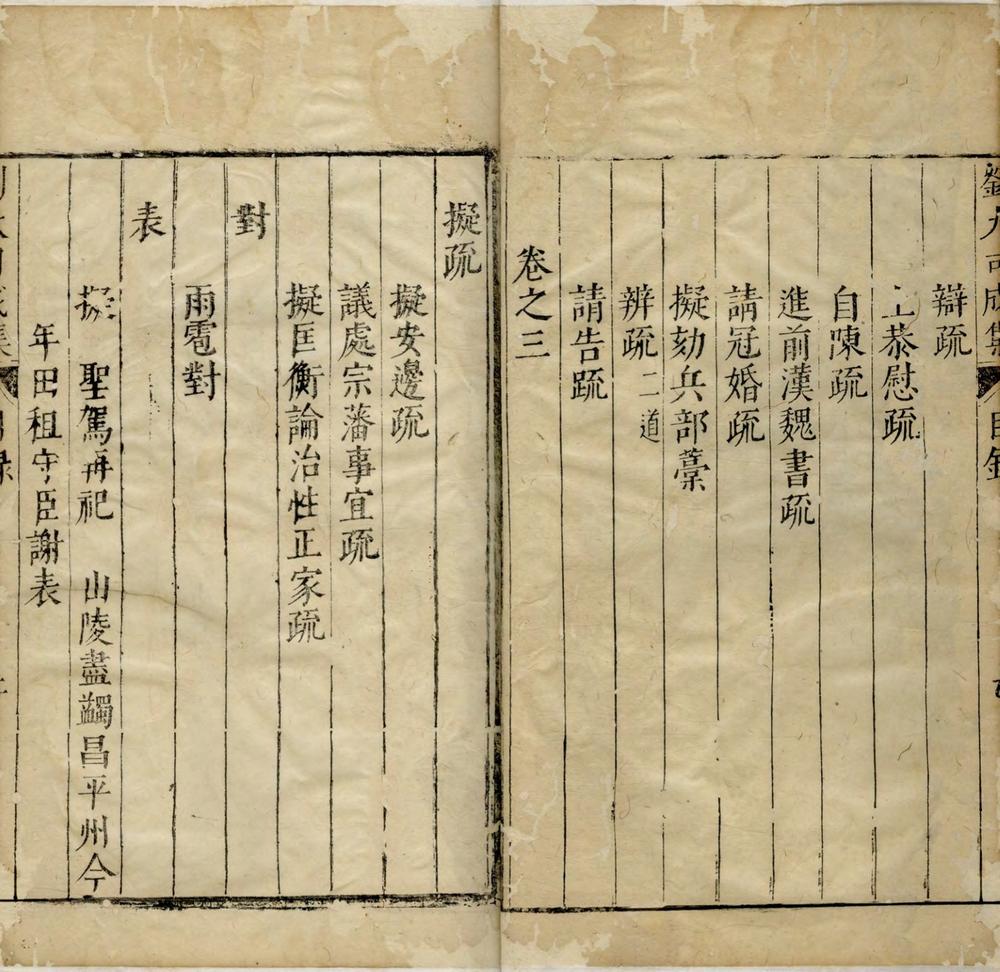 辯疏
上恭慰疏
自陳疏
進前漢魏書疏
請冠婚疏
擬劾兵部藁
辨疏二道
請告䟽
卷之三
擬疏
擬安邊疏
議處宗藩事宜疏
擬匡衡論治性正家疏
對
雨雹對
表
擬 聖駕再祀 山陵盡蠲昌平州今
年田租守臣謝表